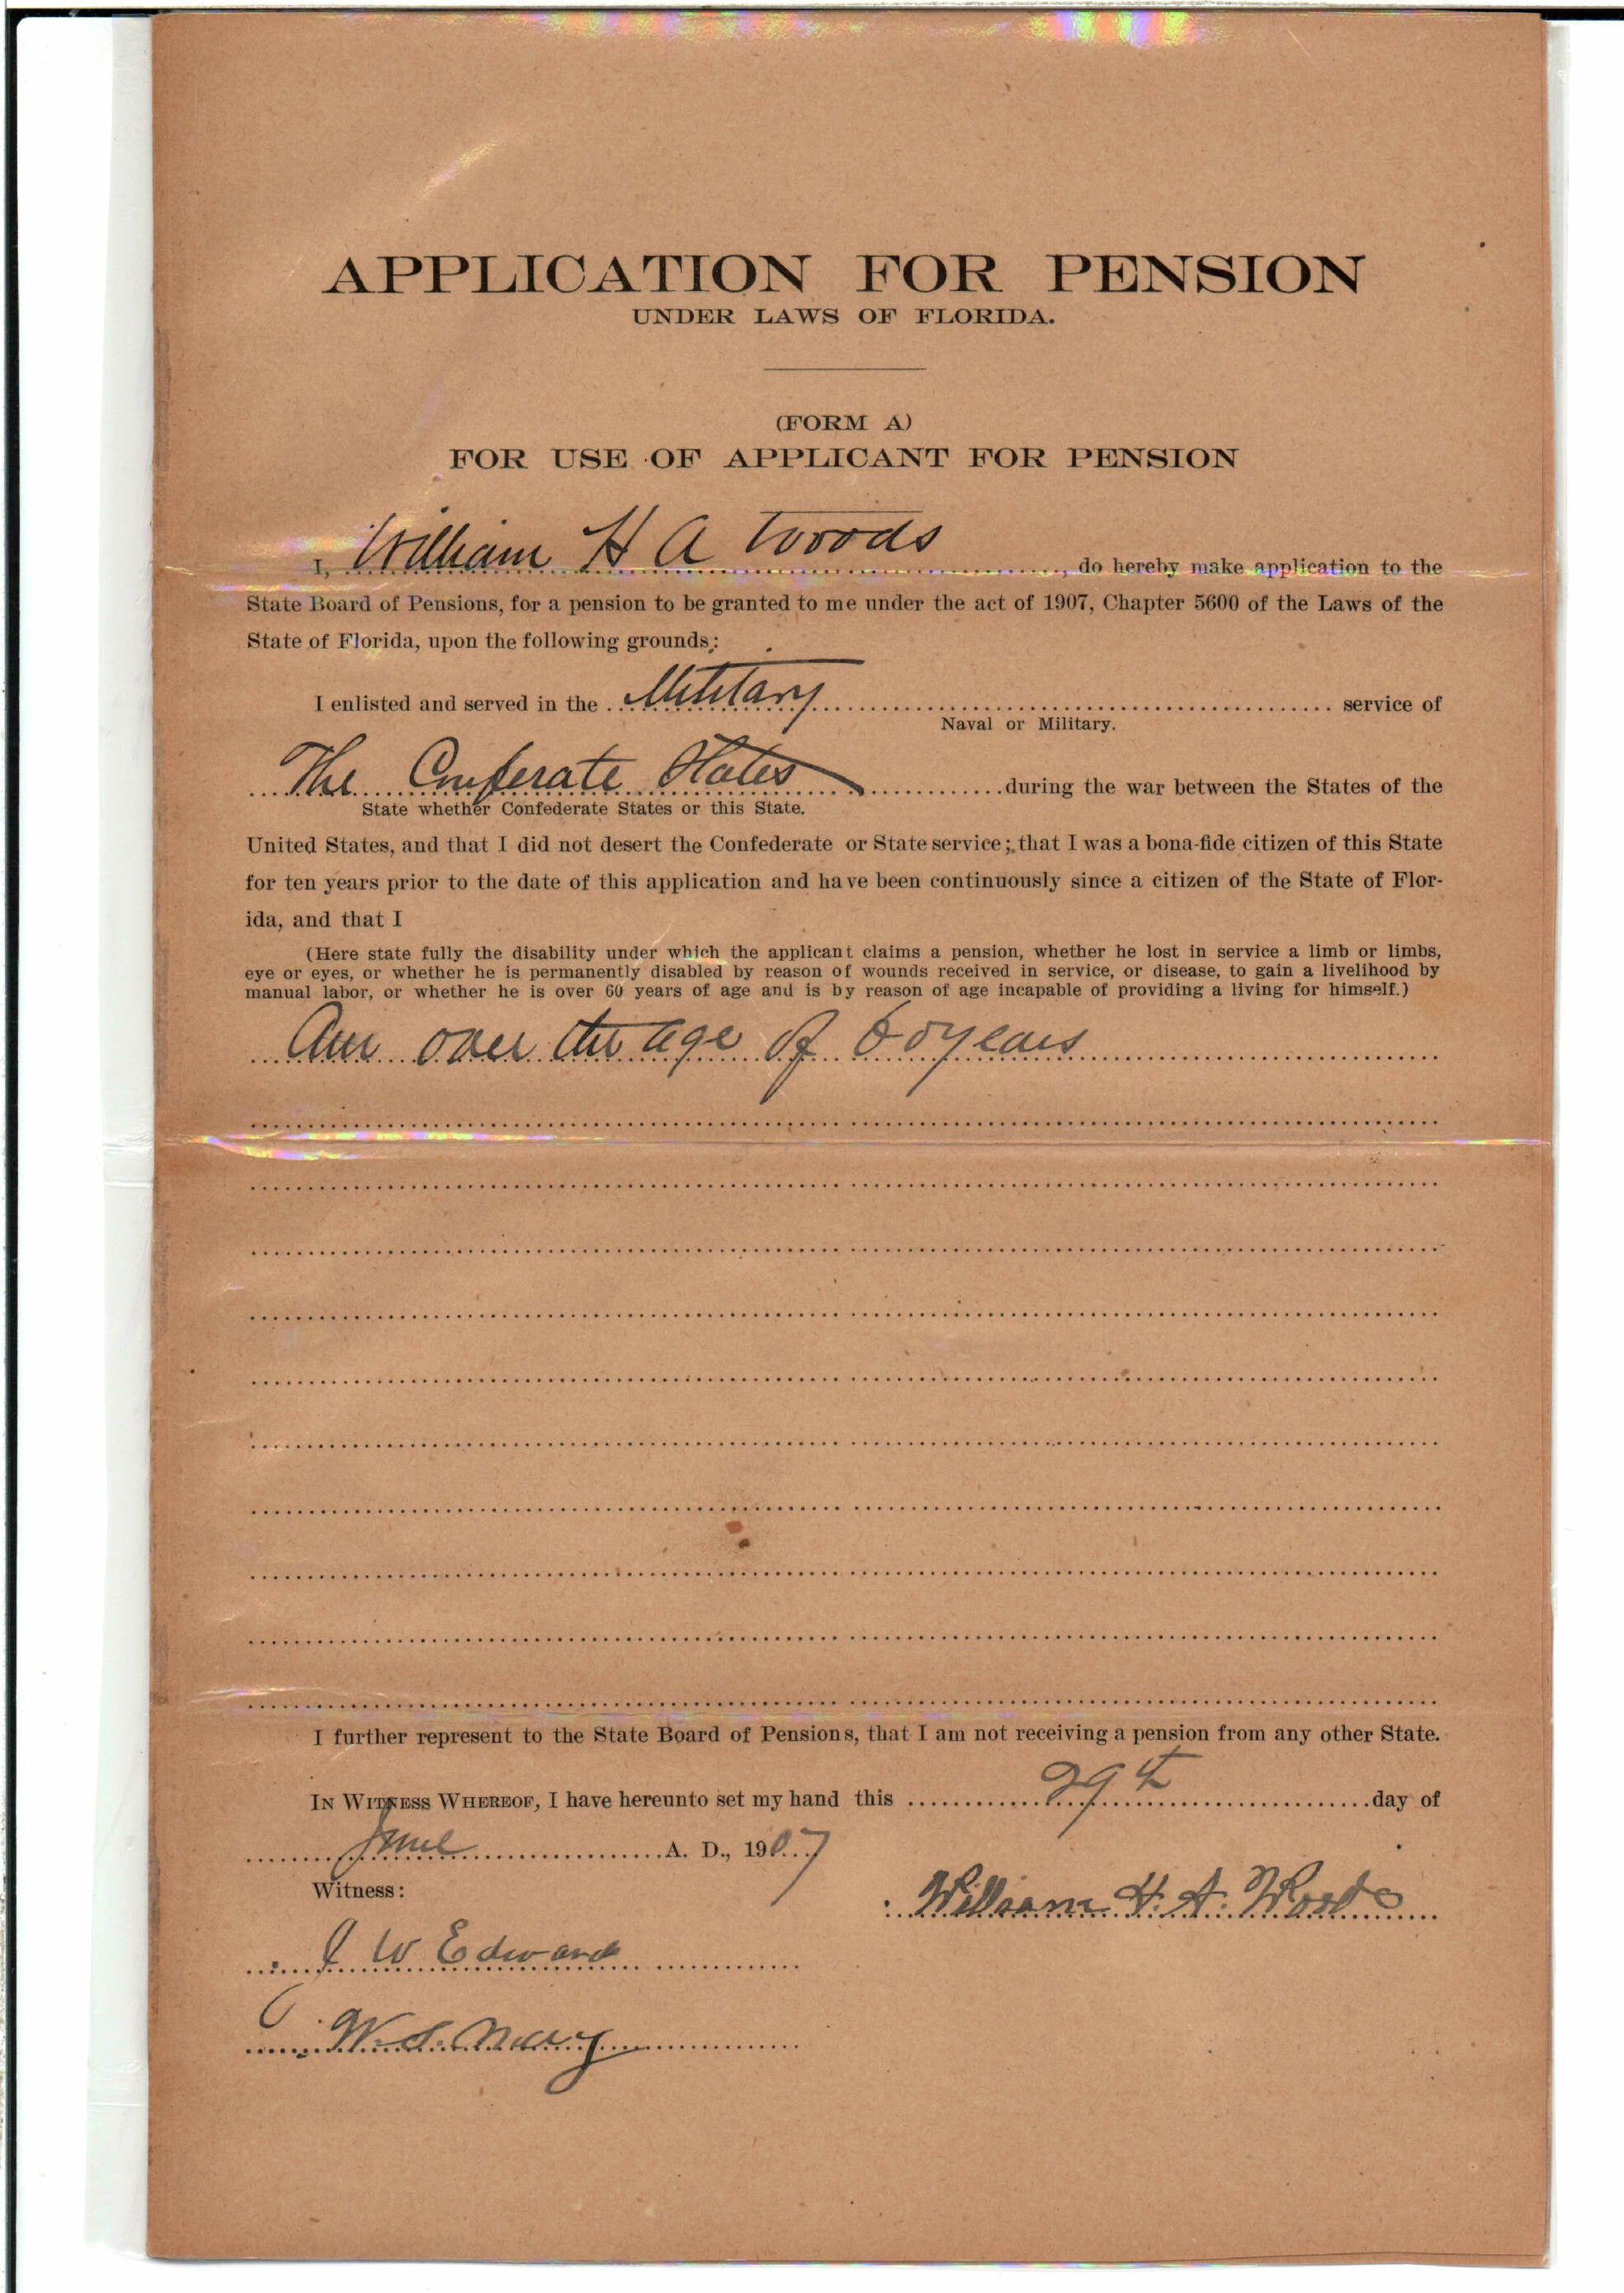 APPLICATION FOR PENSION
UNDER LAWS OF FLORIDA.
(FORM A)
FOR USE OF APPLICANT FOR PENSION
I, William H A Woods, do hereby make application to the
State Board of Pensions, for a pension to be granted to me under the act of 1907, Chapter 5600 of the Laws of the
State of Florida, upon the following grounds:
I enlisted and served in the Military service of
Naval or Military.
The Conferate States during the war between the States of the
State whether Confederate States or this State.
United States, and that I did not desert the Confederate or State service; that I was a bona-fide citizen of this State
for ten years prior to the date of this application and have been continuously since a citizen of the State of Flor-
ida, and that I
(Here state fully the disability under which the applicant claims a pension, whether he lost in service a limb or limbs,
eye or eyes, or whether he is permanently disabled by reason of wounds received in service, or disease, to gain a livelihood by
manual labor, or whether he is over 60 years of age and is by reason of age incapable of providing a living for himself.)
Am over the age of 60 years
I further represent to the State Board of Pensions, that I am not receiving a pension from any other State.
IN WITNESS WHEREOF, I have hereunto set my hand this 29th day of
June A. D., 1907
Witness:
William H. A. Woods
J W Edward
W. S.